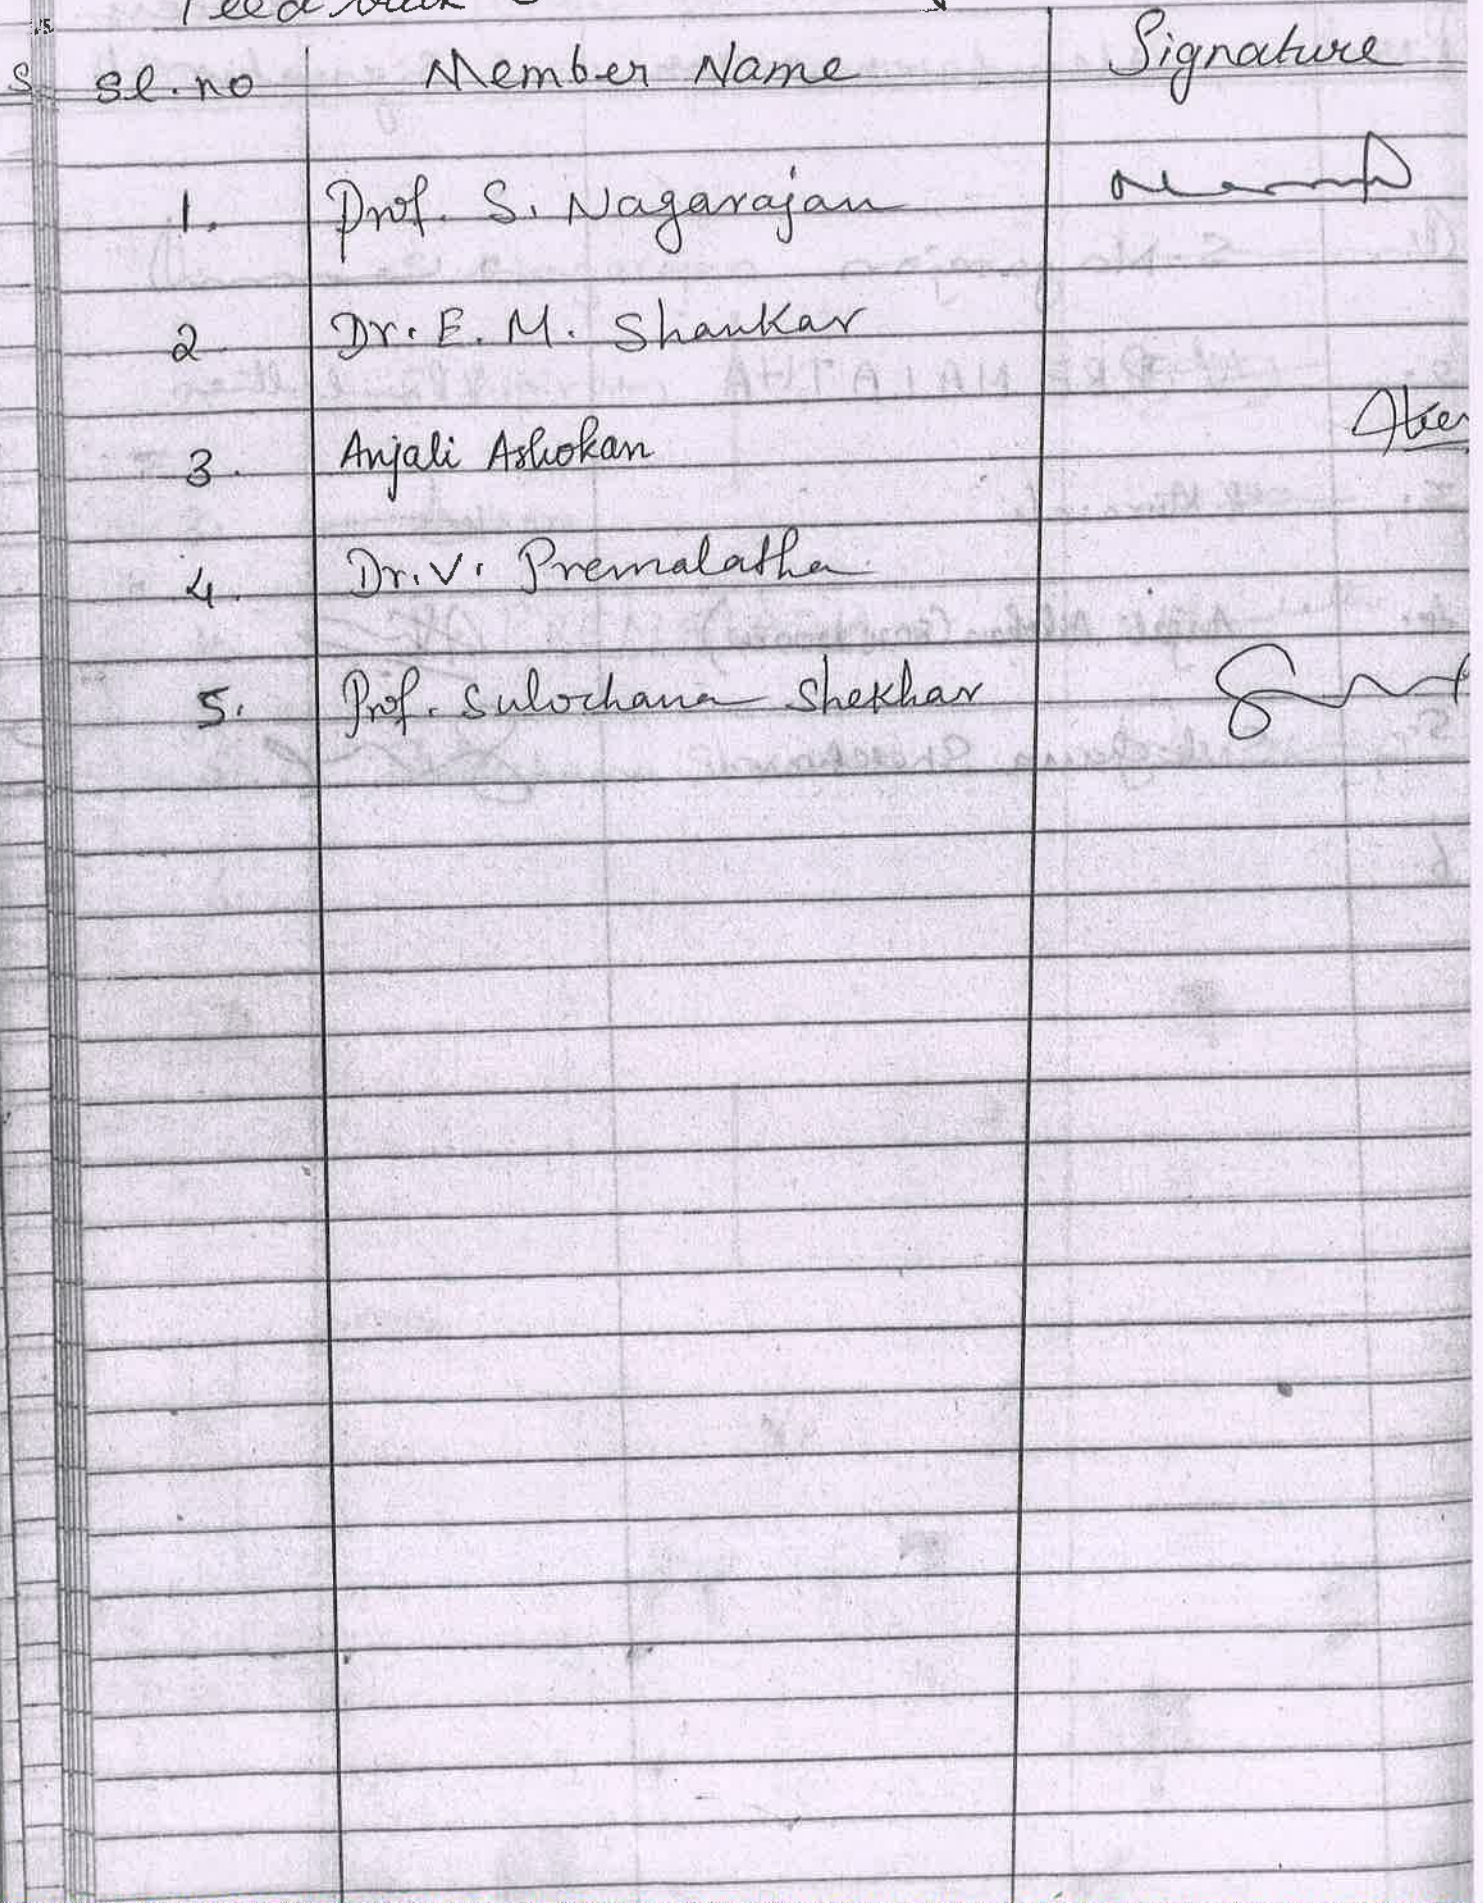 Feed back
Sl. no Member Name Signature
1. Prof. S. Nagarajan
2 Dr. E. M. Shankar
3. Anjali Ashokan
4. Dr. V. Premalatha
5. Prof. Sulochana Shekhar